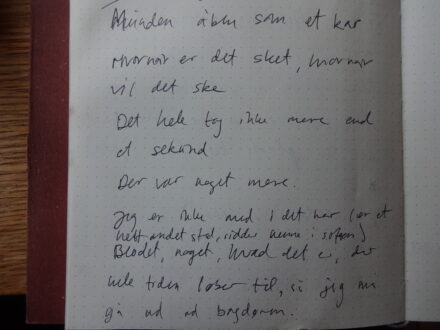 Munden åben som et kar
Hvornår er det sket, hvornår
vil det ske
Det hele tog ikke mere end
et sekund
Der var noget mere.
Jeg er ikke med i det her (er et
helt andet sted, sidder henne i sofaen)
Blodet, noget, hvad det er, der
hele tiden løber til, så jeg må
gå ud ad bagdøren.